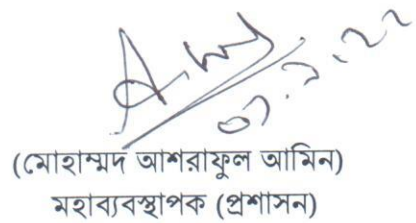 (মোহাম্মদ আশরাফুল আমিন)
মহাব্যবস্থাপক (প্রশাসন)